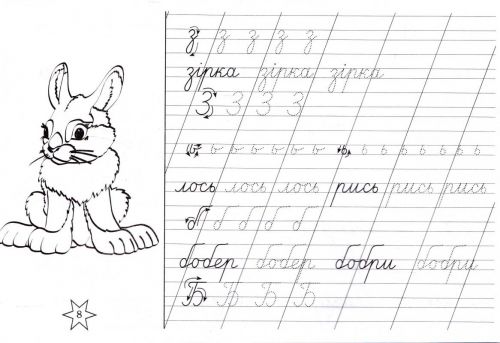 з з з з з
зірка зірка зірка
З З З З
ь ь ь ь ь ь ь ь ь ь ь ь ь ь
лось лось лось рись рись рись
б б б б б
бобер бобер бобри бобри
Б Б Б Б
8